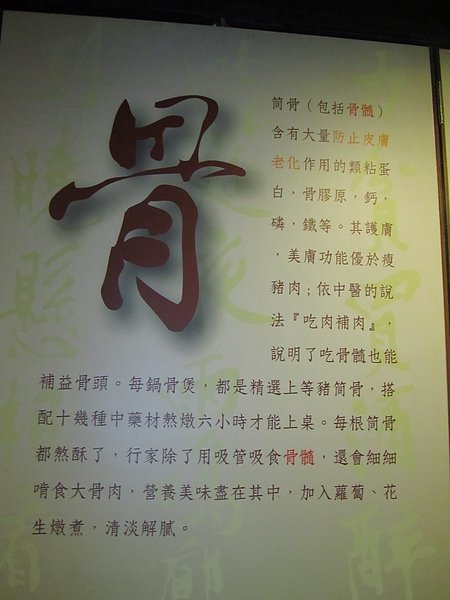 骨
筒骨（包括骨髓）
含有大量防止皮膚
老化作用的類粘蛋
白，骨膠原，鈣，
磷，鐵等。其護膚
，美膚功能優於瘦
豬肉；依中醫的說
法『吃肉補肉』，
說明了吃骨髓也能
補益骨頭。每鍋骨煲，都是精選上等豬筒骨，搭
配十幾種中藥材熬燉六小時才能上桌。每根筒骨
都熬酥了，行家除了用吸管吸食骨髓，還會細細
啃食大骨肉，營養美味盡在其中，加入蘿蔔、花
生燉煮，清淡解膩。